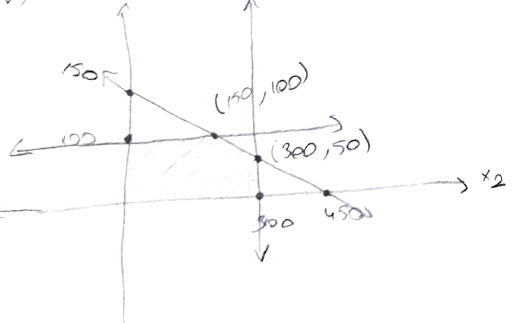 150
(150, 100)
100
(300, 50)
x2
300
450